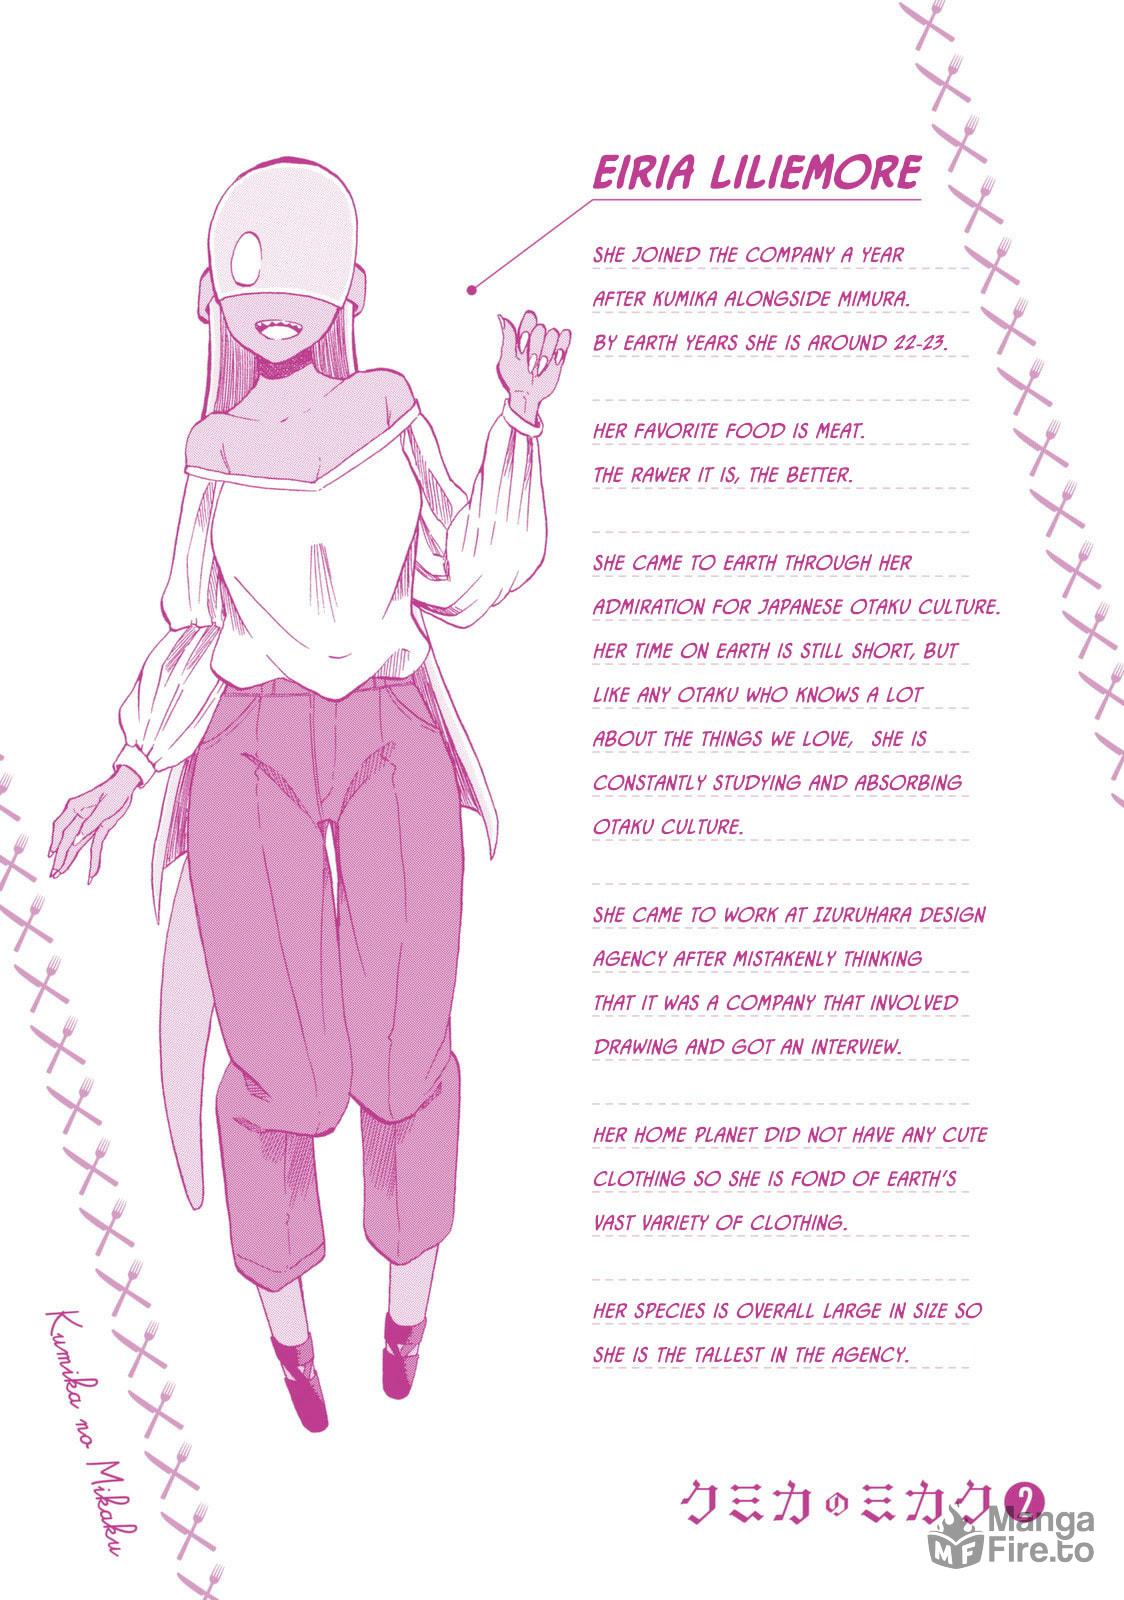 EIRIA LILIEMORE
SHE JOINED THE COMPANY A YEAR
AFTER KUMIKA ALONGSIDE MIMURA.
BY EARTH YEARS SHE IS AROUND 22-23.
HER FAVORITE FOOD IS MEAT.
THE RAWER IT IS, THE BETTER.
SHE CAME TO EARTH THROUGH HER
ADMIRATION FOR JAPANESE OTAKU CULTURE.
HER TIME ON EARTH IS STILL SHORT, BUT
LIKE ANY OTAKU WHO KNOWS A LOT
ABOUT THE THINGS WE LOVE, SHE IS
CONSTANTLY STUDYING AND ABSORBING
OTAKU CULTURE.
SHE CAME TO WORK AT IZURUHARA DESIGN
AGENCY AFTER MISTAKENLY THINKING
THAT IT WAS A COMPANY THAT INVOLVED
DRAWING AND GOT AN INTERVIEW.
HER HOME PLANET DID NOT HAVE ANY CUTE
CLOTHING SO SHE IS FOND OF EARTH'S
VAST VARIETY OF CLOTHING.
HER SPECIES IS OVERALL LARGE IN SIZE SO
SHE IS THE TALLEST IN THE AGENCY.
Kumika no Mikaku
クミカのミカク2
MF Manga
Fire.to